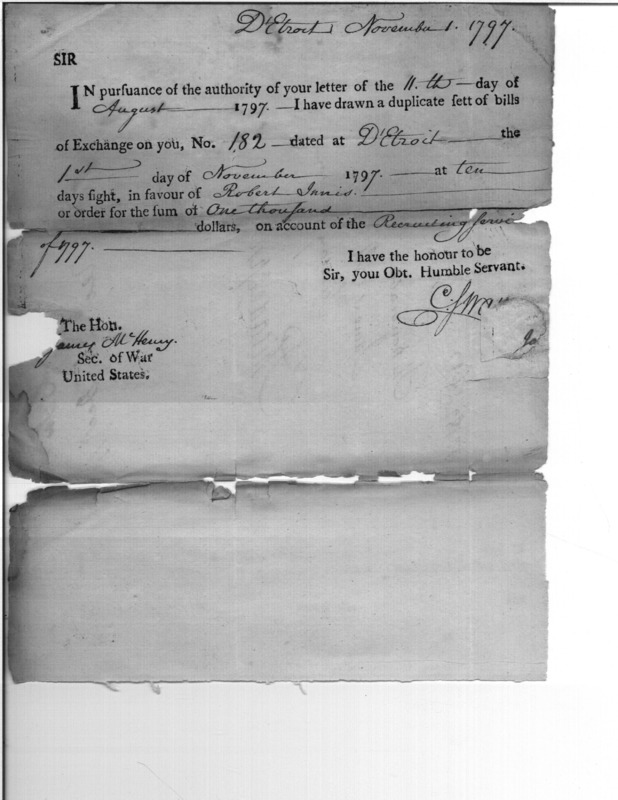 D'Etroit November 1. 1797.
SIR
IN pursuance of the authority of your letter of the 11.th day of
August 1797. I have drawn a duplicate fett of bills
of Exchange on you, No. 182 dated at D'Etroit the
1st day of November 1797. at ten
days sight, in favour of Robert Innis.
or order for the sum of One thousand
dollars, on account of the Recruiting Servi
of 1797.
I have the honour to be
Sir, your Obt. Humble Servant.
The Hon.
James McHenry.
Sec. of War
United States.